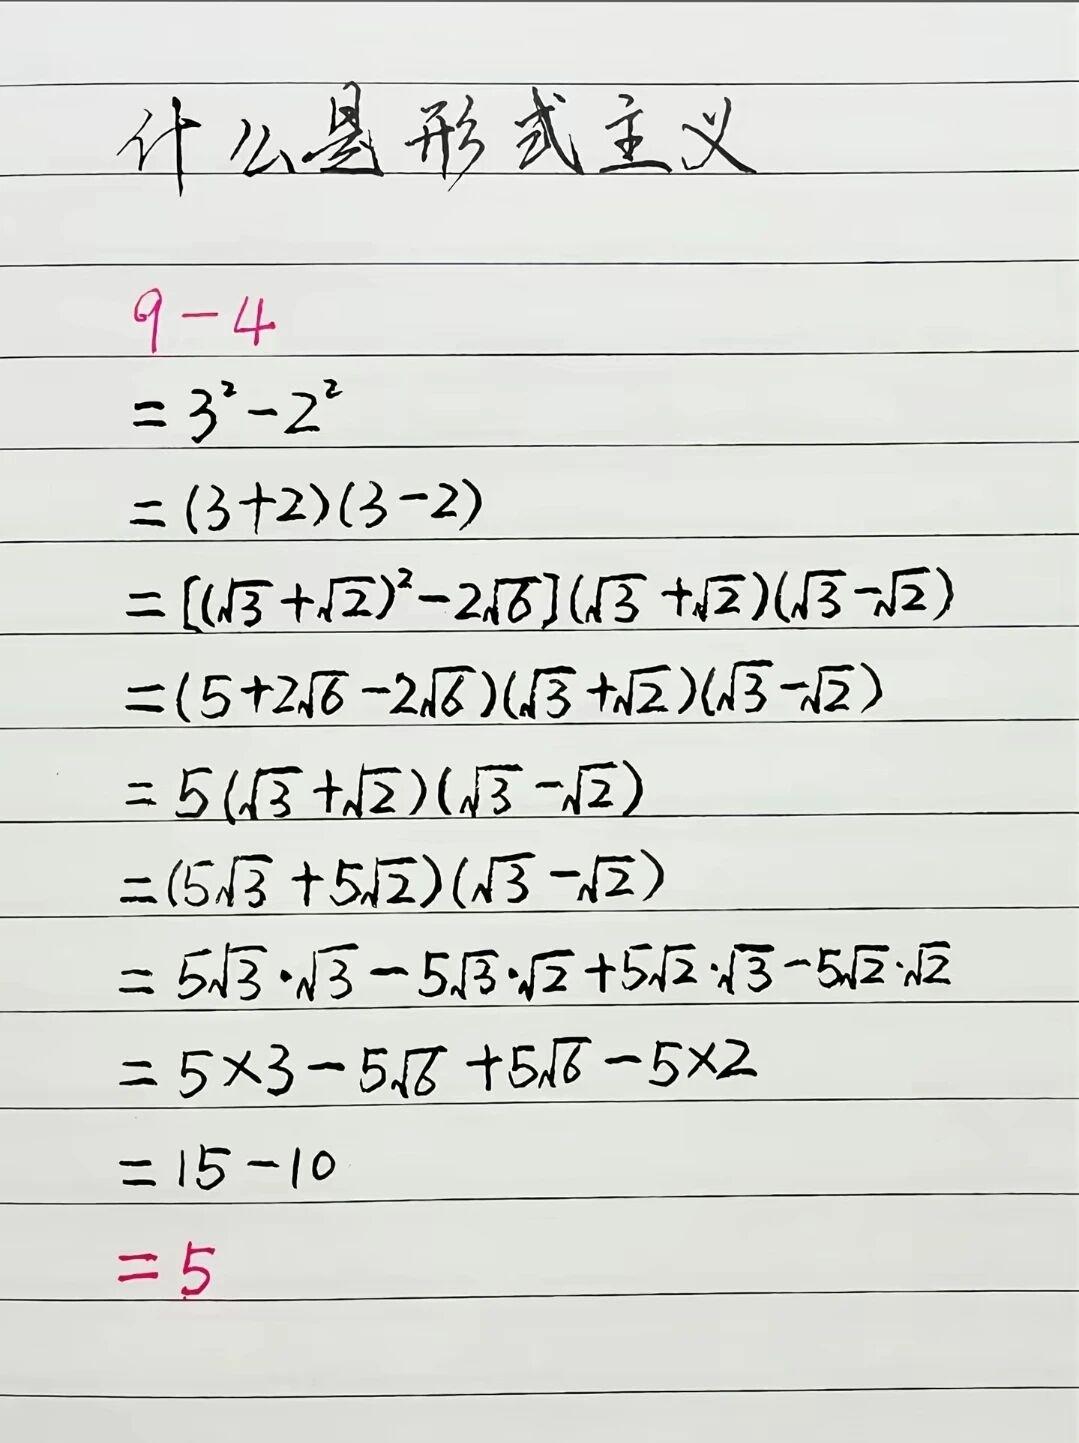 什么是形式主义
9-4
=3²-2²
=(3+2)(3-2)
=[(√3+√2)²-2√6](√3+√2)(√3-√2)
=(5+2√6-2√6)(√3+√2)(√3-√2)
=5(√3+√2)(√3-√2)
=(5√3+5√2)(√3-√2)
=5√3·√3-5√3·√2+5√2·√3-5√2·√2
=5×3-5√6+5√6-5×2
=15-10
=5